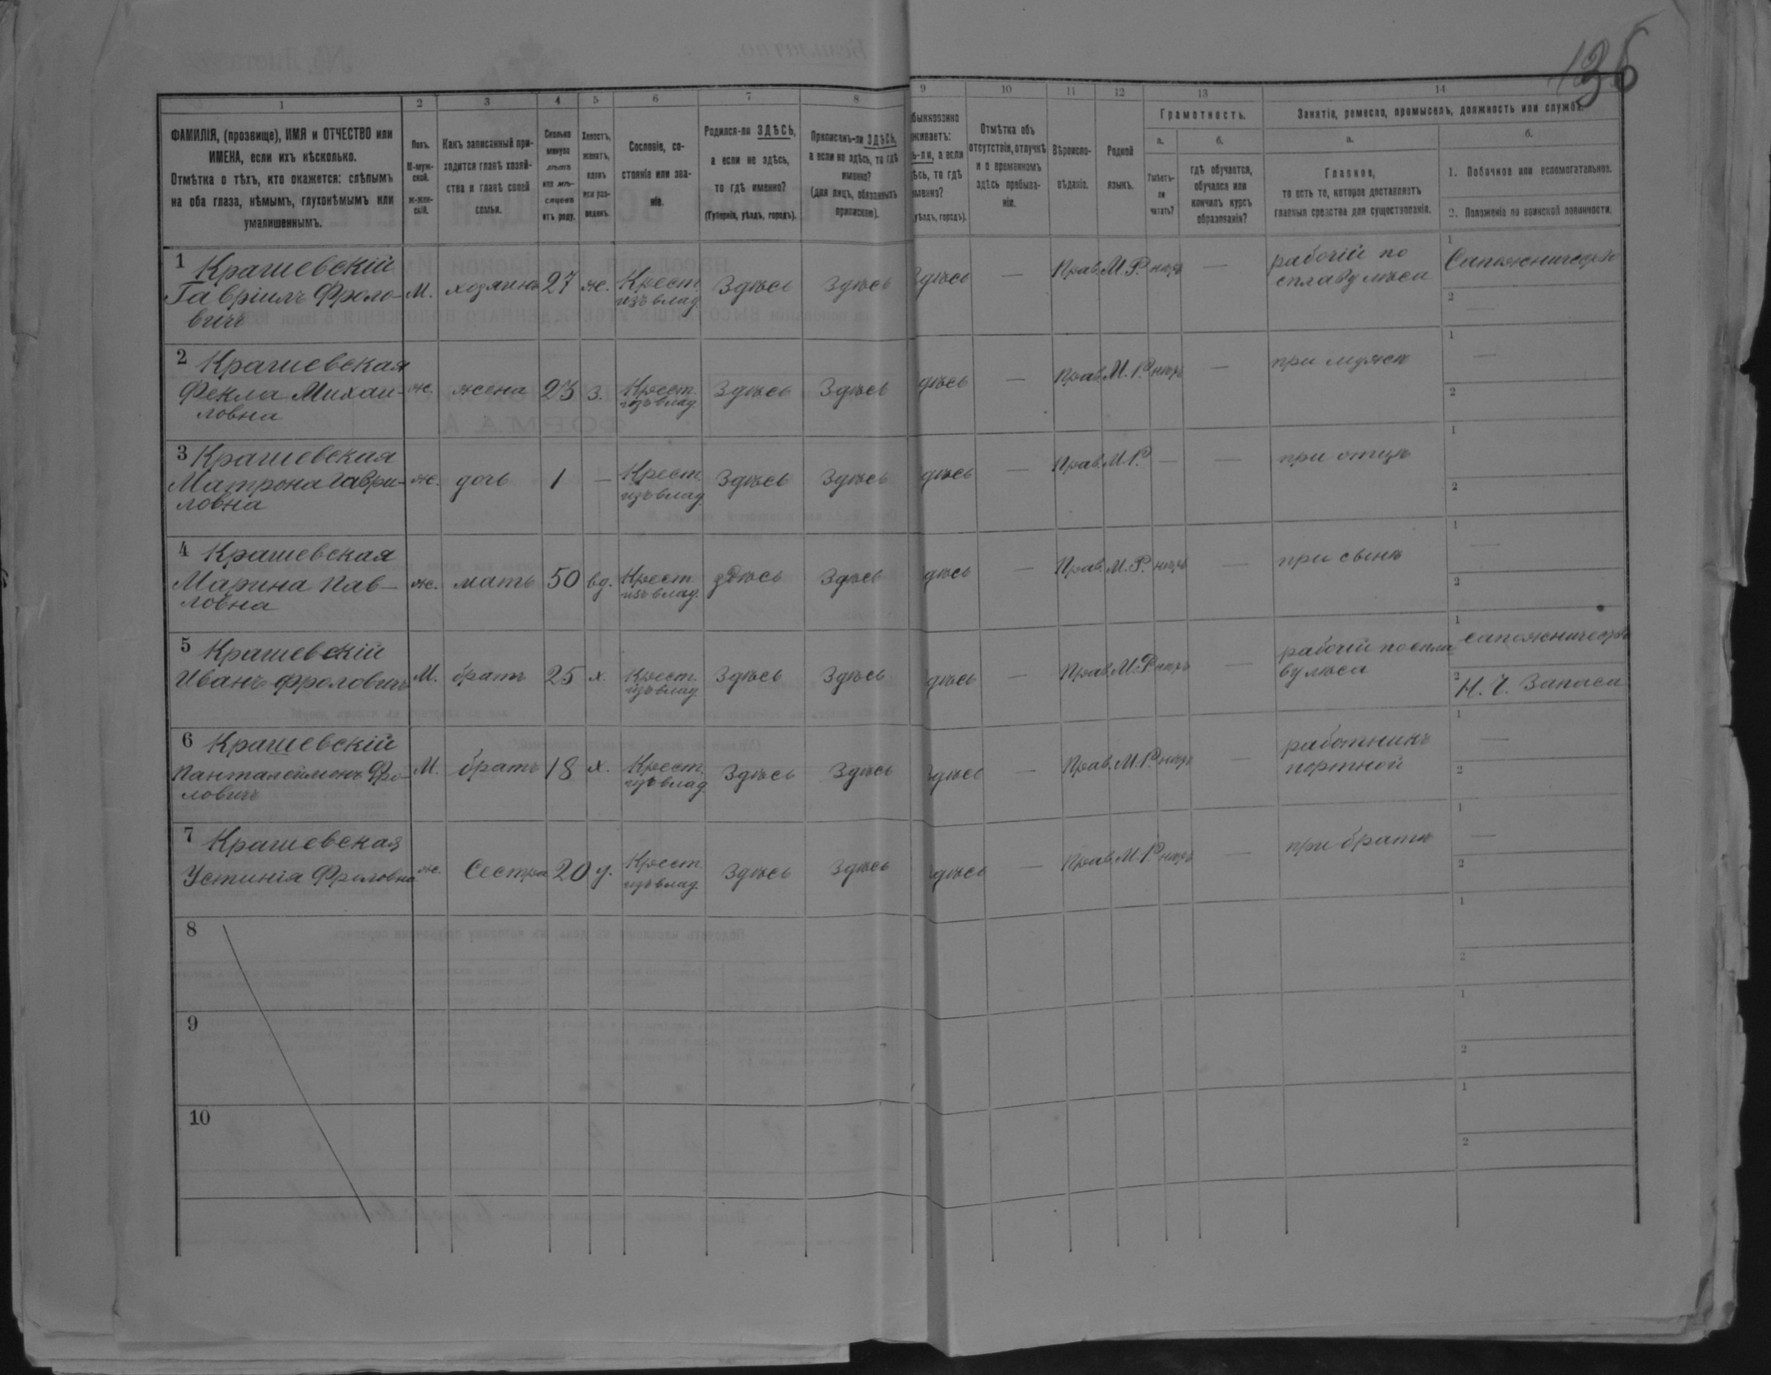 136
1 2 3 4 5 6 7 8 9 10 11 12 13 14
ФАМИЛІЯ, (прозвище), ИМЯ и ОТЧЕСТВО или
ИМЕНА, если ихъ нѣсколько.
Отмѣтка о тѣхъ, кто окажется: слѣпымъ
на оба глаза, нѣмымъ, глухонѣмымъ или
умалишеннымъ.
Полъ.
М-муж-
ской.
Ж-жен-
скій.
Какъ записанный при-
ходится главѣ хозяй-
ства и главѣ своей
семьи.
Сколько
минуло
лѣтъ
или мѣ-
сяцевъ
отъ роду.
Холостъ,
женатъ,
вдовъ
или раз-
веденъ.
Сословіе, со-
стояніе или зва-
ніе.
Родился-ли ЗДѢСЬ,
а если не здѣсь,
то гдѣ именно?
(Губернія, уѣздъ, городъ).
Приписанъ-ли ЗДѢСЬ,
а если не здѣсь, то гдѣ
именно?
(для лицъ, обязанныхъ
припискою).
быкновенно
живаетъ:
ь-ли, а если
ѣсь, то гдѣ
менно?
уѣздъ, городъ).
Отмѣтка объ
отсутствіи, отлучкѣ
и о временномъ
здѣсь пребыва-
ніи.
Вѣроиспо-
вѣданіе.
Родной
языкъ.
Грамотность.
а.
Умѣетъ-
ли
читать?
б.
гдѣ обучается,
обучался или
кончилъ курсъ
образованія?
Занятіе, ремесло, промыселъ, должность или служба.
а.
Главное,
то есть то, которое доставляетъ
главныя средства для существованія.
б.
1. Побочное или вспомогательное.
2. Положеніе по воинской повинности.
1 Крашевскій
Гавріилъ Фроло-
вичъ
М. хозяинъ 27 ж. Крест.
изъ влад.
Здѣсь Здѣсь Здѣсь — Прав. М. Р. нѣтъ —
рабочій по
сплаву лѣса
1 Сапожничество
2 —
2 Крашевская
Фекла Михаи-
ловна
ж. жена 23 з. Крест.
изъ влад.
Здѣсь Здѣсь дѣсь — Прав. М. Р. нѣтъ — при мужѣ
1 —
2
3 Крашевская
Матрона Гаври-
ловна
ж. дочь 1 — Крест.
изъ влад.
Здѣсь Здѣсь дѣсь — Прав. М. Р. — — при отцѣ
1
2
4 Крашевская
Марина Пав-
ловна
ж. мать 50 вд. Крест.
изъ влад.
здѣсь Здѣсь дѣсь — Прав. М. Р. нѣтъ — при сынѣ
1 —
2
5 Крашевскій
Иванъ Фроловичъ
М. братъ 25 х. Крест.
изъ влад.
Здѣсь Здѣсь дѣсь — Прав. М. Р. нѣтъ —
рабочій по спла
ву лѣса
1 сапожничество
2 Н. Ч. Запаса
6 Крашевскій
Пантелеймонъ Фро-
ловичъ
М. братъ 18 х. Крест.
изъ влад.
Здѣсь Здѣсь Здѣсь — Прав. М. Р. нѣтъ —
работникъ
портной
1 —
2
7 Крашевская
Устинія Фроловна
ж. Сестра 20 д. Крест.
изъ влад.
Здѣсь Здѣсь дѣсь — Прав. М. Р. нѣтъ — при братѣ
1 —
2
8
1
2
9
1
2
10
1
2